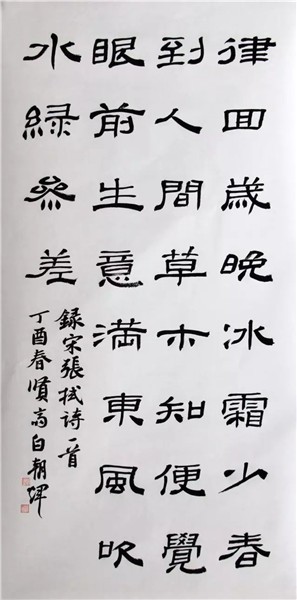 律回歲晚冰霜少春
到人間草木知便覺
眼前生意滿東風吹
水綠參差
錄宋張栻詩一首
丁酉春賢高白朝